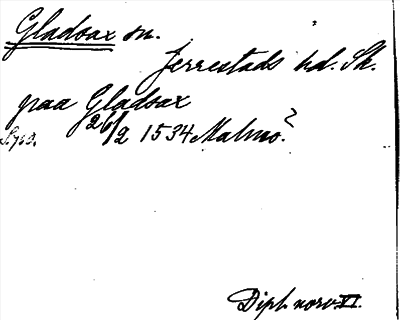 Gladsax sn.
Jerrestads hd. Sk.
paa Gladsax
26/2 1534 Malmø?
Dipl. norv. XI.